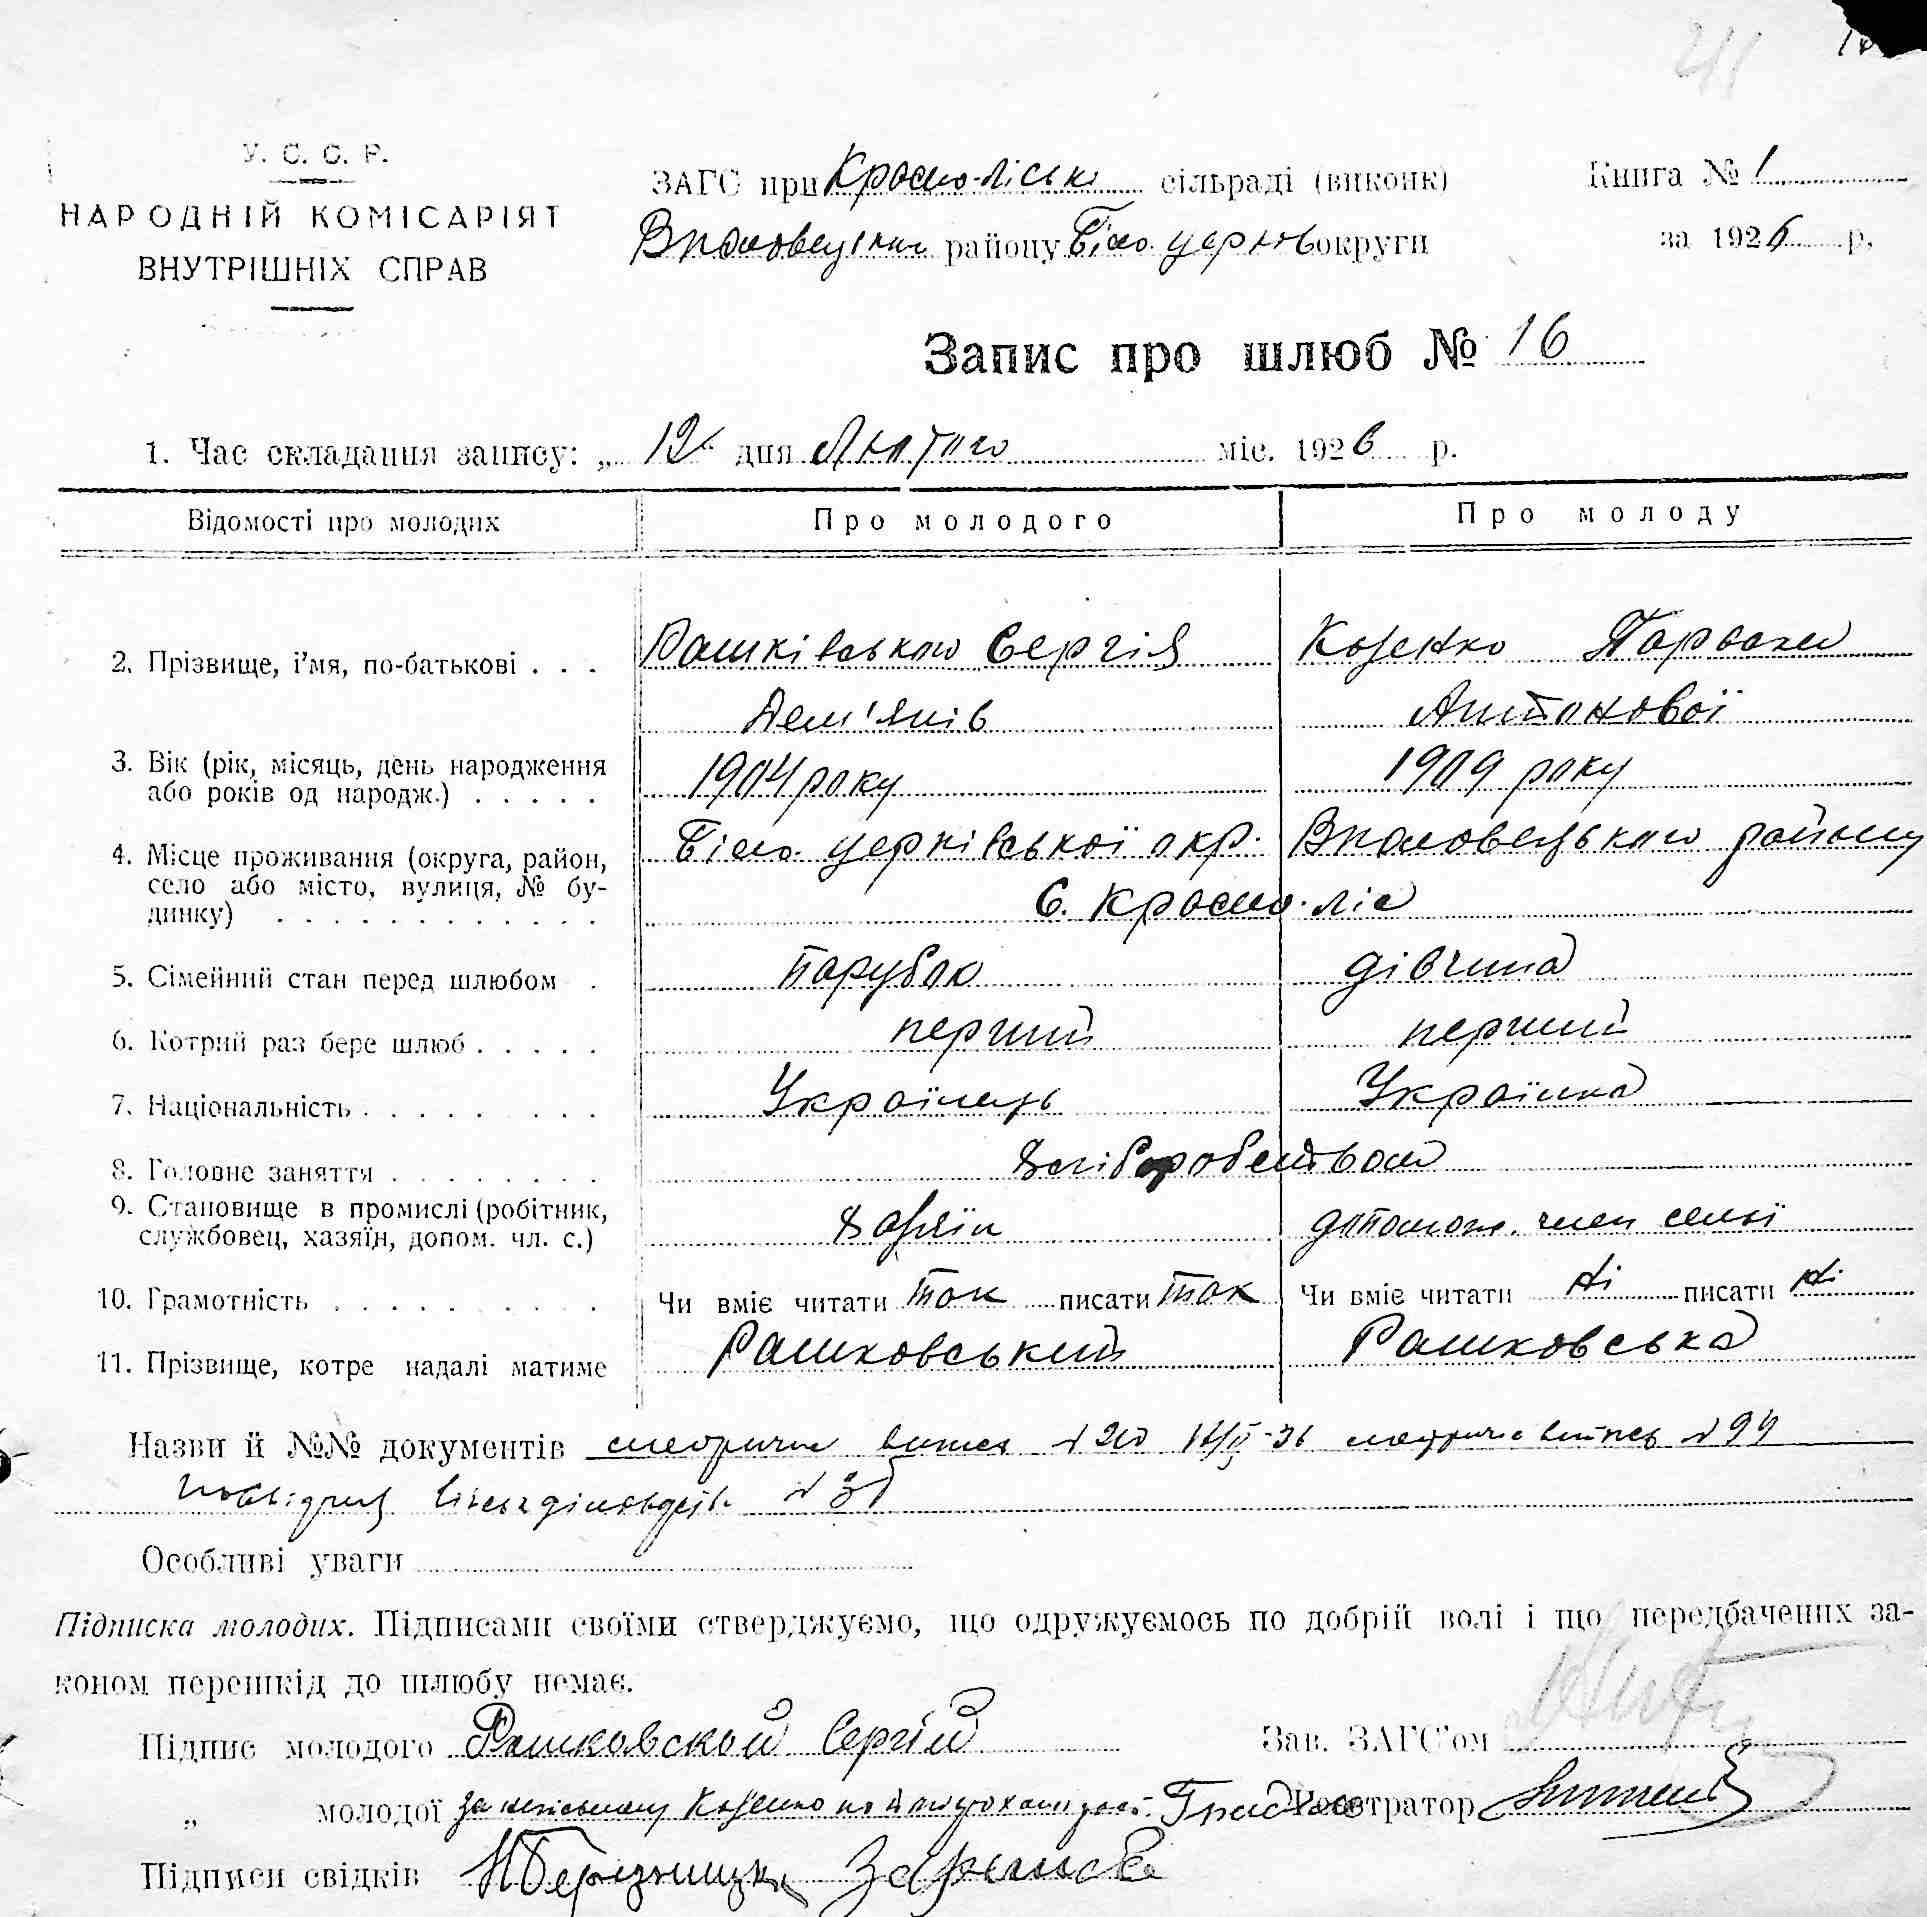 211
У. С. С. Р.
НАРОДНІЙ КОМІСАРІЯТ
ВНУТРІШНІХ СПРАВ
ЗАГС при Красно-ліські сільраді (виконк)
районy Біло. церков округи
Книга № 1
за 1926 р,
Запис про шлюб № 16
1. Час складання запису: „ 12 дня Лютого міс. 1926 р.
Відомості про молодих Про молодого Про молоду
2. Прізвище, і'мя, по-батькові . . . Рашківського Сергія Козенко Параски
Дем'янів Антонової
3. Вік (рік, місяць, день народження
або років од народж.) . . . . . 1904 року 1909 року
4. Місце проживання (округа, район, Біло. церківської окр. району
село або місто, вулиця, № бу-
динку) . . . . . . . . . . . . С. Красно-ліс
5. Сімейний стан перед шлюбом . парубок дівчина
6. Котрий раз бере шлюб . . . . . перший перший
7. Національність . . . . . . . . Українець Українка
8. Головне заняття . . . . . . . . Хліборобством
9. Становище в промислі (робітник,
службовец, хазяїн, допом. чл. с.) Хазяїн допомож. член семьї
10. Грамотність . . . . . . . . Чи вміє читати так писати так Чи вміє читати ні писати ні
11. Прізвище, котре надалі матиме Рашковський Рашковська
Назви й №№ документів метричн витяг
Особливі уваги
Підписка молодих. Підписами своїми стверджуємо, що одружуємось по добрій волі і що передбачених за-
коном перешкід до шлюбу немає.
Підпис молодого Рашковской Сергій Зав. ЗАГС'ом
„ молодої за неписьменну Козенко Реєстратор
Підписи свідків